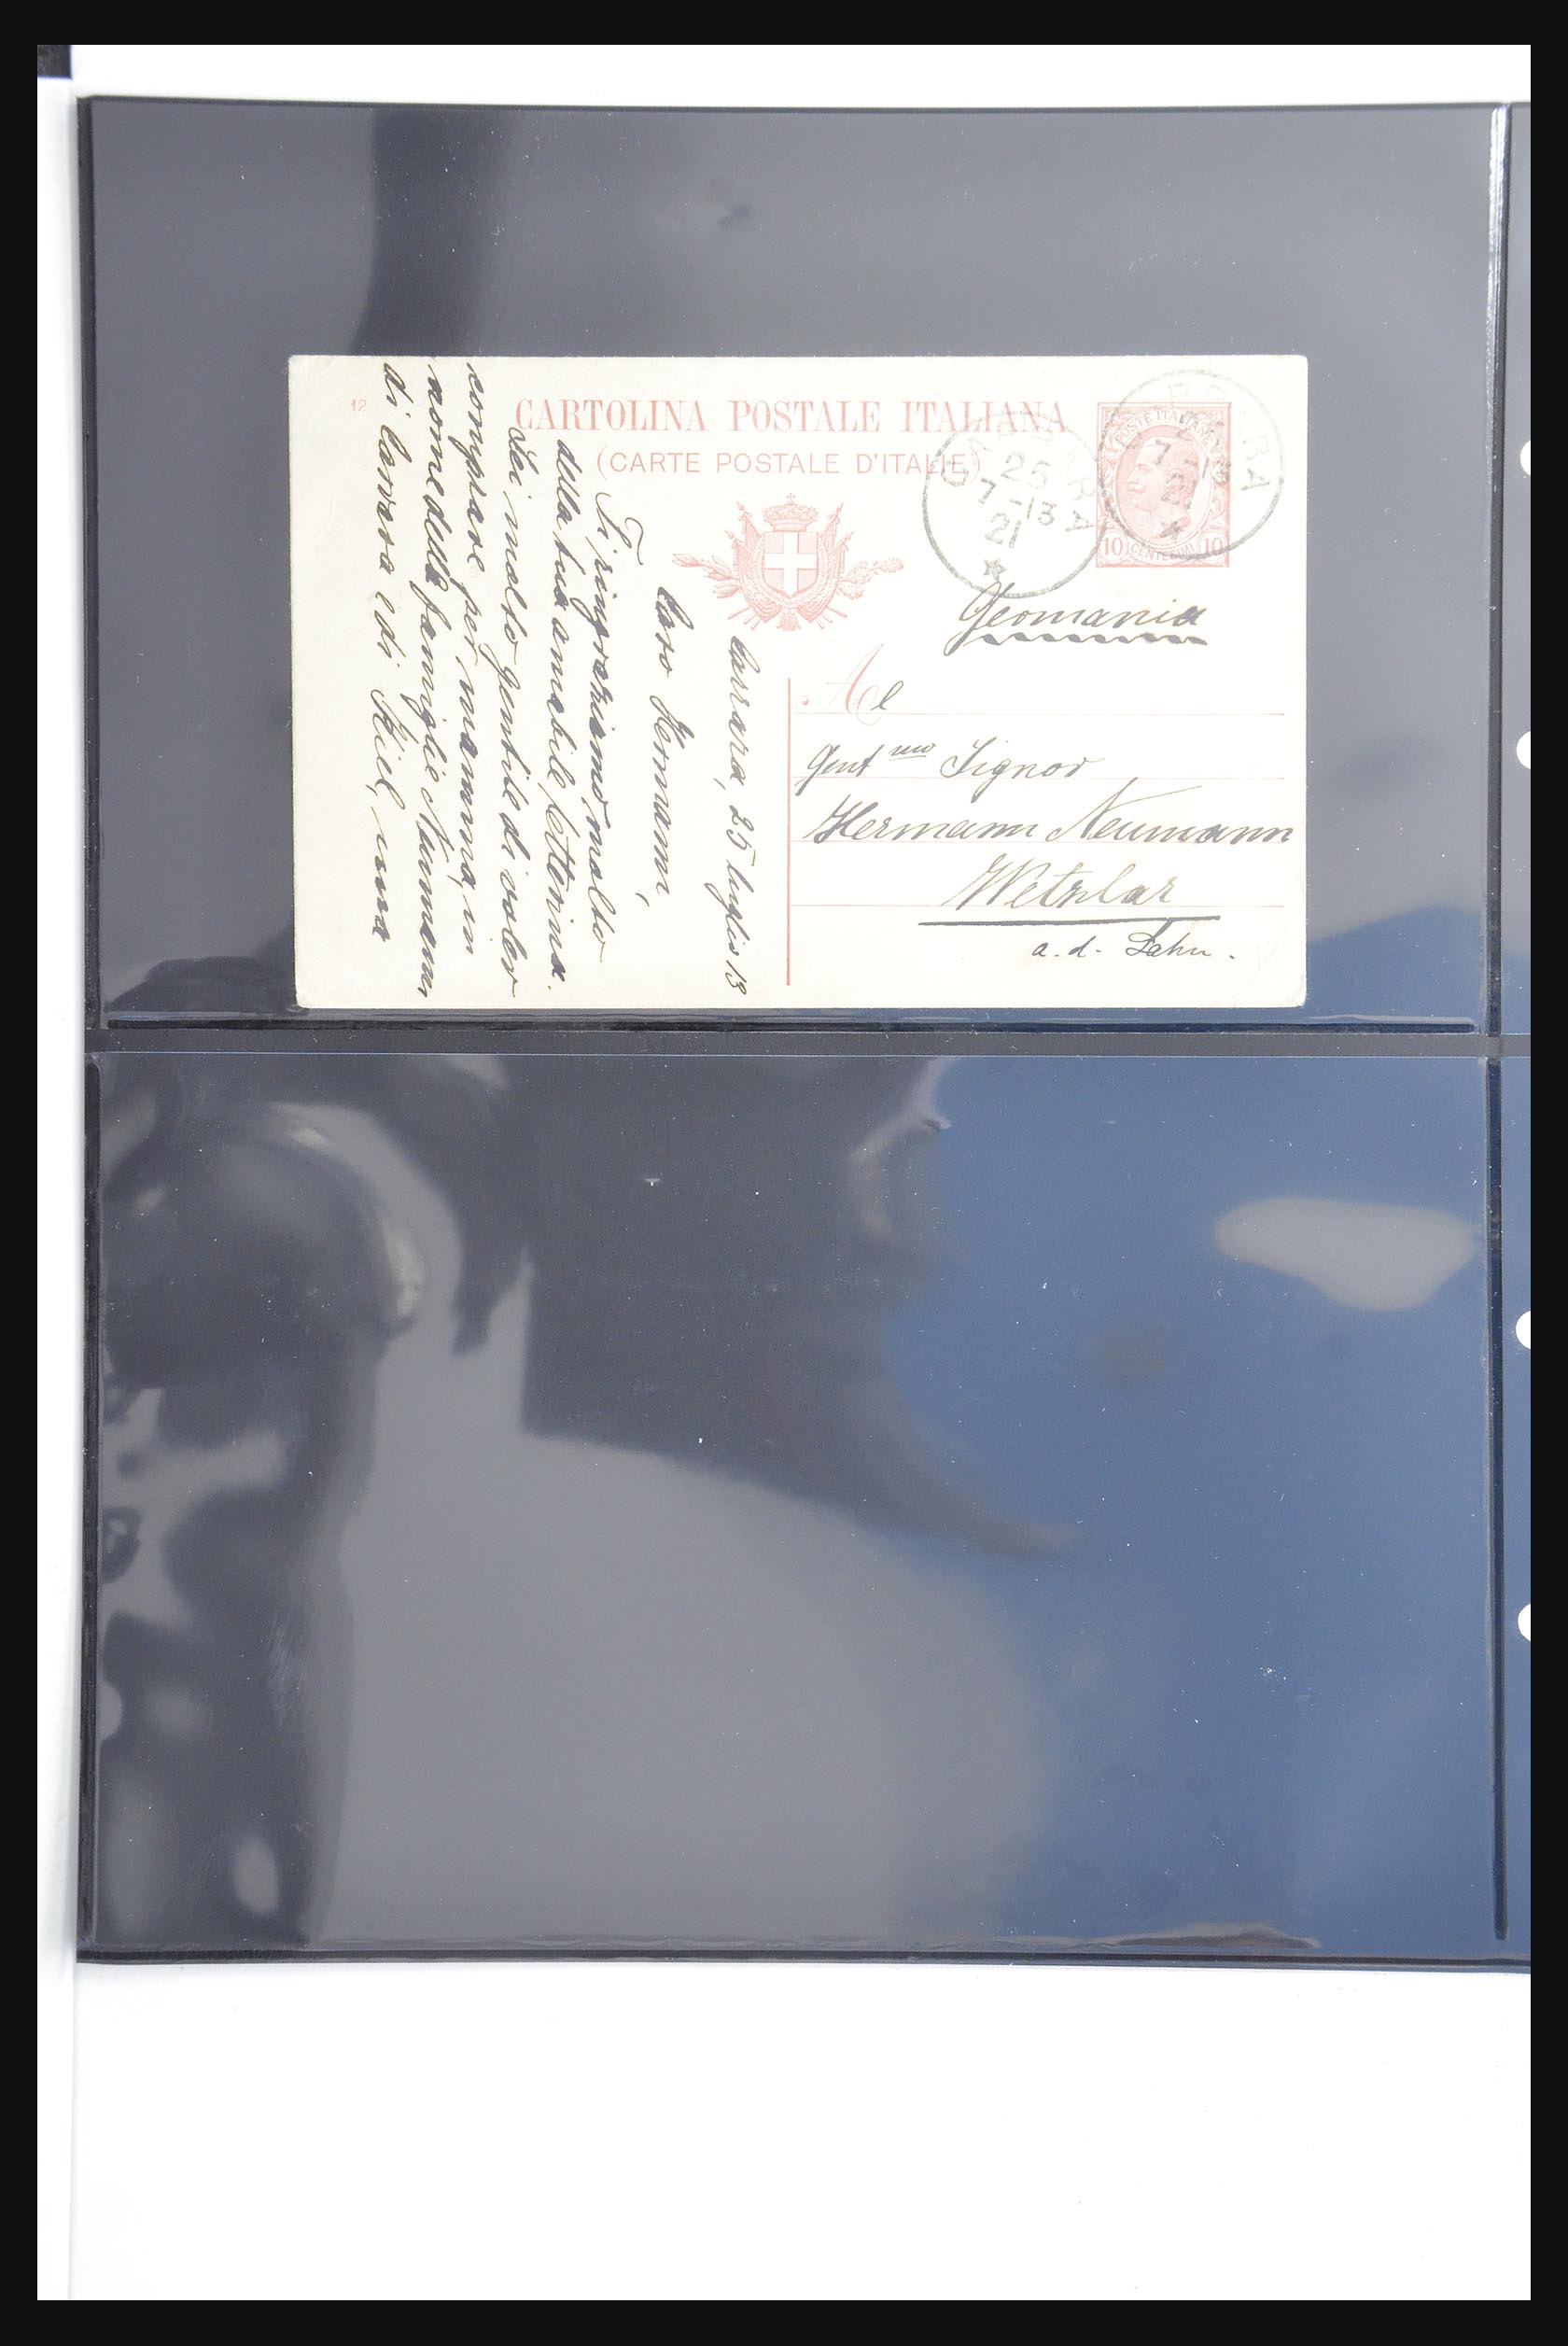 CARTOLINA POSTALE ITALIANA
(CARTE POSTALE D'ITALIE)
12
CARRARA
25
7-13
21
CARRARA
25
7-13
21
POSTE ITALIANE
10 CENTESIMI 10
Germania
Al
Gent mo Signor
Hermann Neumann
Wetzlar
a. d. Lahn.
Carrara, 25 luglio 13
Caro Hermann,
Ti ringraziamo molto
della tua amabile lettera.
Sei molto gentile di voler
comprare per mamma, in
nome della famiglie Neumann
di Carrara e di Kiel, una